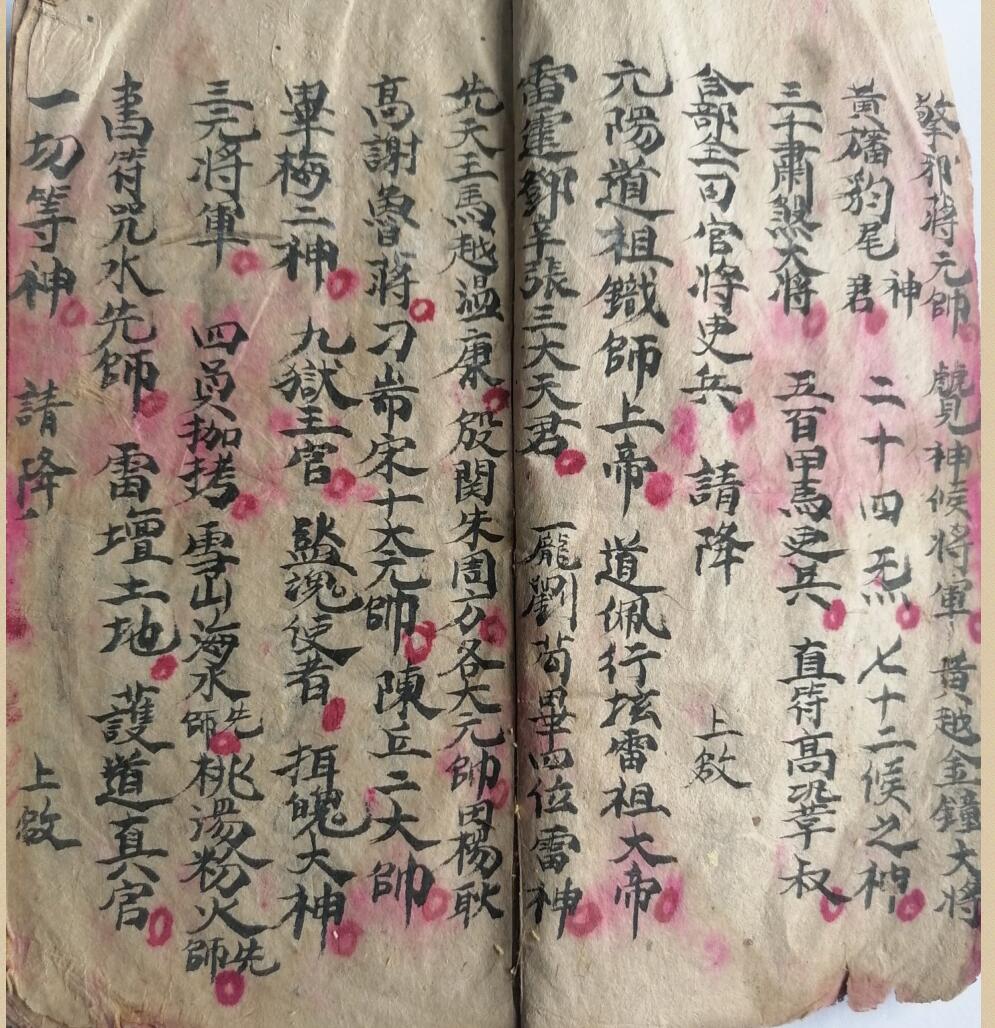 擎邪蔣元帥 神候將軍 黃越金鐘大將
黃旛豹尾神君 二十四炁 七十二候之神
三十肅煞大將 五百甲馬吏兵 直符高鞏叔
合部全司官將吏兵 請降 上啟
六陽道祖鐵師上帝 道佩行玄雷祖大帝
雷霆鄧辛張三大天君 龐劉苟畢四位雷神
先天王馬越溫康 殷関朱周方各大元帥田楊耿
高謝魯蔣刁 宋十大元帥 陳丘二大帥
畢梅二神 九獄主官 魂使者 大神
三元將軍 四員拷 雪山海水先師 桃湯粉火先師
書符咒水先師 雷壇土地 護道真官
一切等神 請降 上啟